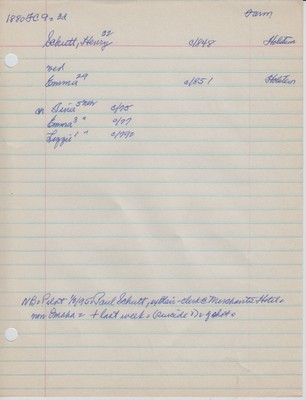 1880 G C 9 = 3d Farm
Schutt, Henry 32 c/1848 Holstein
wed
Emma 29 c/1851 Holstein
ch Tina 5 c/75
Emma 3 " c/77
Lizzie 1 " c/
NB = Pilot Paul Schutt, - clerk @ Merchants Hotel =
non Omaha = + last week = (suicide ?) =